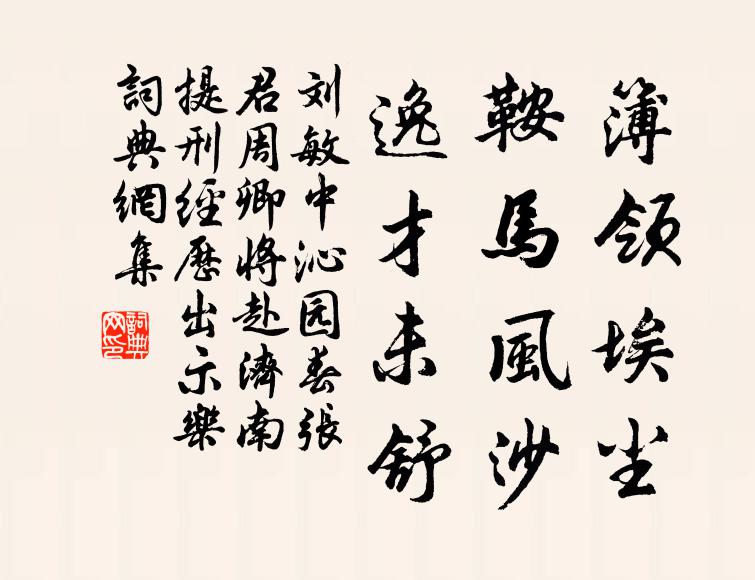 簿领埃尘
鞍馬風沙
逸才未舒
刘敏中沁园春張
君周卿将赴濟南
提刑經歷出示樂
詞典網集
詞典
网印